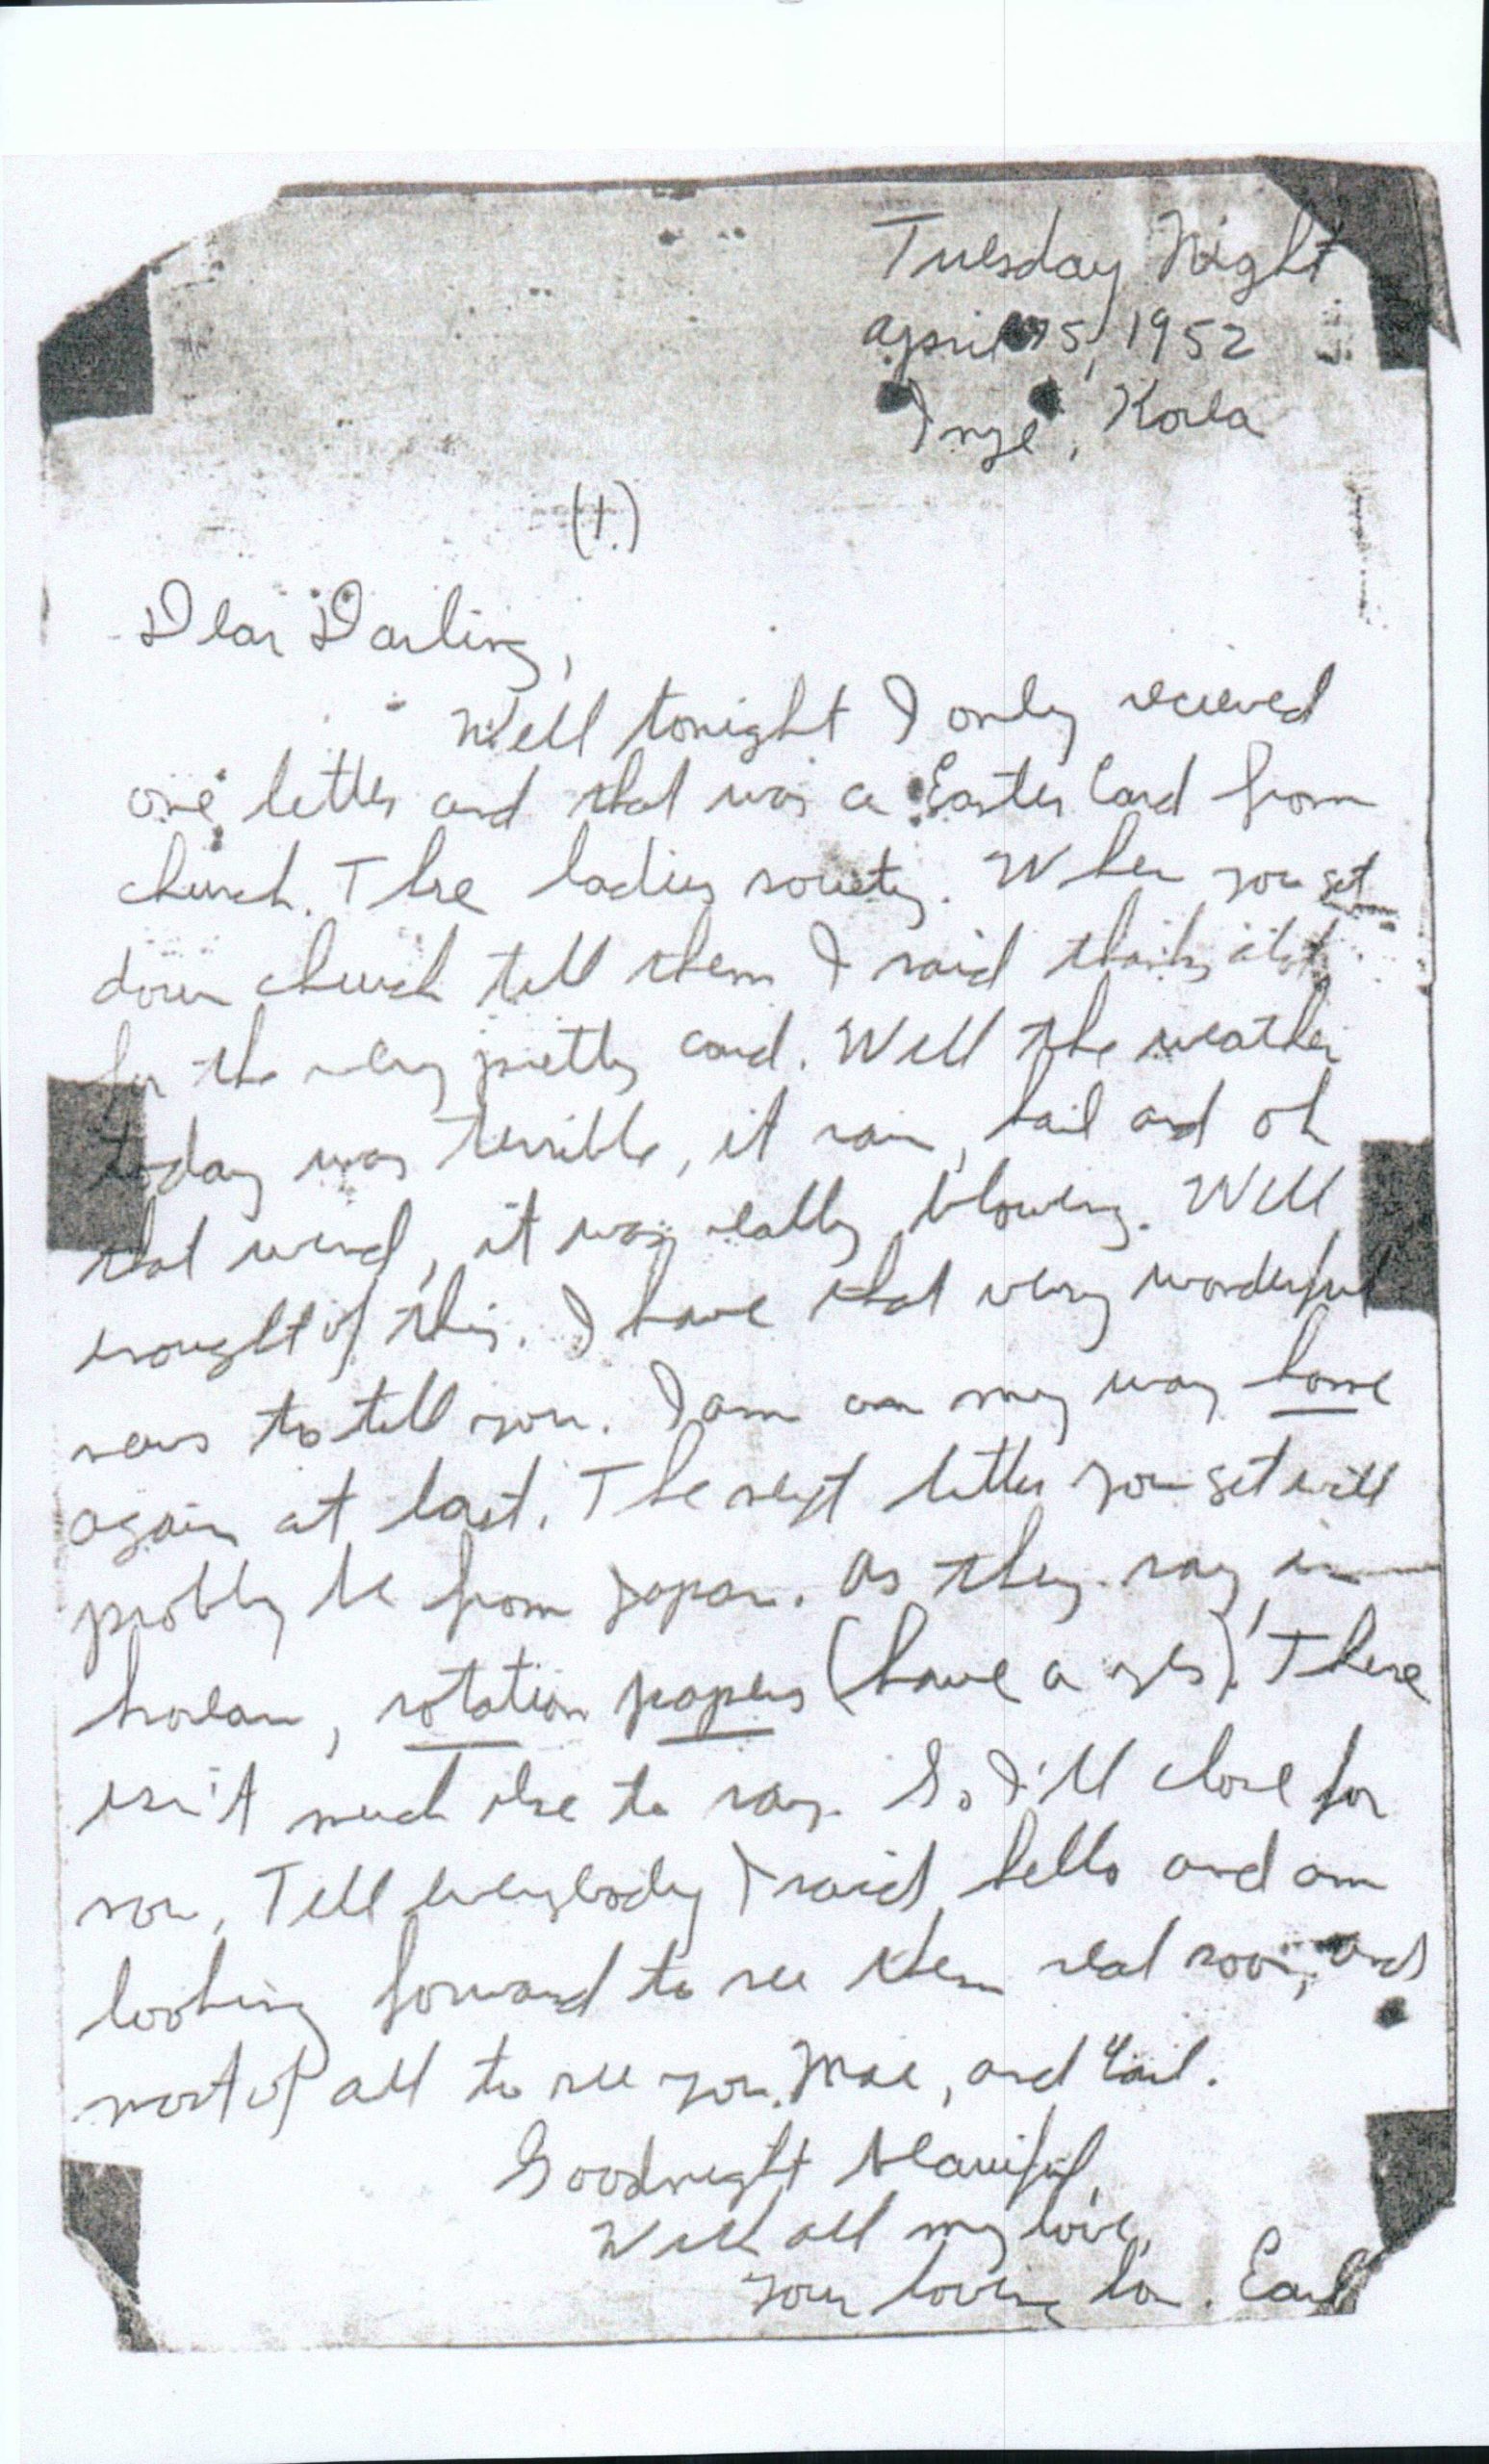 Tuesday Night
April 15, 1952
Inje, Korea
(1.)
Dear Darling,
Well tonight I only recieved
one letter and that was a Easter Card from
church. The ladies society. When you get
down church tell them I said thanks alot
for the very pretty card. Well the weather
today was terrible, it rain, hail and oh
that wind, it was really blowing. Well
enought of this. I have that very wonderful
news to tell you. I am on my way home
again at last. The next letter you get will
probbly be from Japan. As they say in
korean, rotation papers (have a yes). There
isn't much else to say. So I'll close for
now. Tell everybody I said hello and am
looking forward to see them real soon, and
most of all to see you, Mae, and Earl.
Goodnight Beauiful,
With all my love,
Your loving Earl